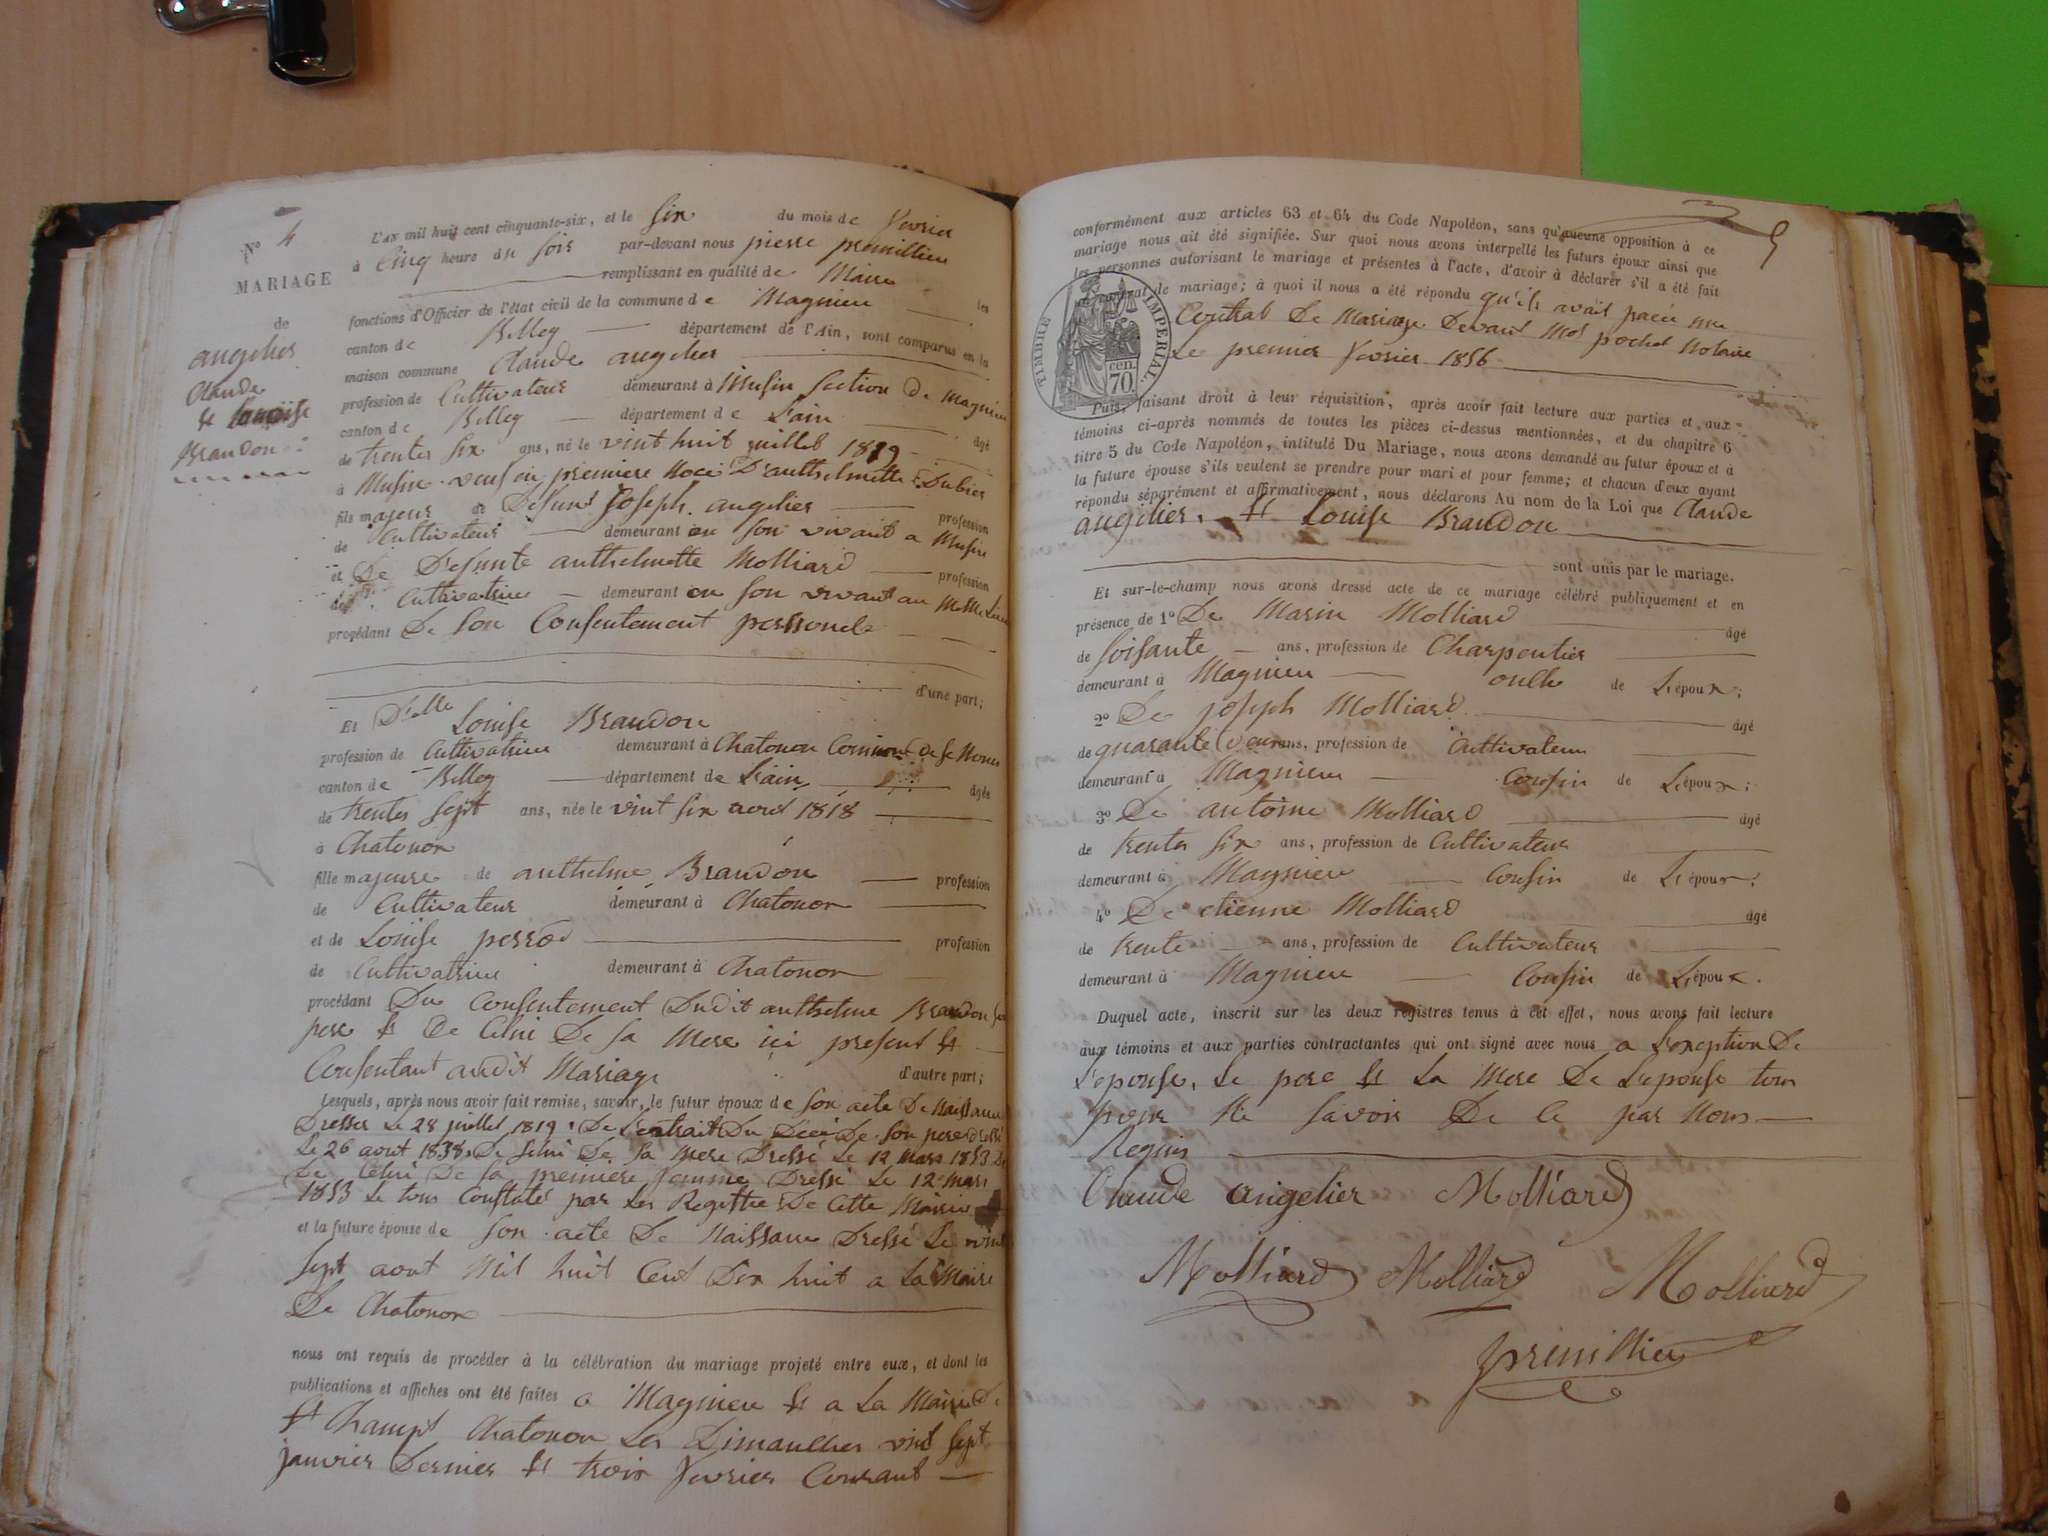 N° 4
MARIAGE
de
angelier
Claude
& Louise
Brandon
L'AN mil huit cent cinquante-six, et le six du mois de fevrier
à Cinq heure du soir par-devant nous pierre premillieu
remplissant en qualité de Maire les
fonctions d'Officier de l'état civil de la commune de Magnieu
canton de Belley département de l'Ain, sont comparus en la
maison commune Claude angelier
profession de Cultivateur demeurant à Musin section de Magnieu
canton de Belley département de L'ain âgé
de trentes six ans, né le vint huit juillet 1819
à Musin veuf en premiere Noce D'anthelmette Dubier
fils majeur de Defunt Joseph angelier profession
de Cultivateur demeurant en son vivant a Musin
et de De Defunte anthelmette Molliard profession
de Cultivatrice demeurant en son vivant au Meme Lieu
procédant De son Consentement personel
d'une part;
Et Delle Louise Brandon
profession de Cultivatrice demeurant à Chatonon Commune de
canton de Belley département de L'ain âgée
de trentes sept ans, née le vint six aout 1818
à Chatonon
fille majeure de anthelme Brandon profession
de Cultivateur demeurant à Chatonon
et de Louise perrod profession
de Cultivatrice demeurant à Chatonon
procédant Du Consentement Dudit anthelme Brandon son
pere & De Celui De sa Mere ici present &
Consentant audit Mariage d'autre part;
lesquels, après nous avoir fait remise, savoir, le futur époux de son acte De Naissance
Dresser Le 28 juillet 1819 De L'extrait Du Décé De son pere dressé
Le 26 aout 1838, De Celui De sa mere Dressé Le 12 Mars 1853 De
De Celui De sa premiere femme Dressé Le 12 Mars
1853 Le tous Constaté par Les Registre De Cette Mairie
et la future épouse de son acte De Naissance Dressé Le vint
sept aout Mil huit Cent Dix huit a La Mairie
De Chatonon
nous ont requis de procéder à la célébration du mariage projeté entre eux, et dont les
publications et affiches ont été faites a Magnieu & a La Mairie De
St Champt Chatonon Les Dimanches vint sept
janvier Dernier & trois fevrier Courant
5
conformément aux articles 63 et 64 du Code Napoléon, sans qu'aucune opposition à ce
mariage nous ait été signifiée. Sur quoi nous avons interpellé les futurs époux ainsi que
les personnes autorisant le mariage et présentes à l'acte, d'avoir à déclarer s'il a été fait
un contrat de mariage; à quoi il nous a été répondu qu'ils avait passé un
Contrat De Mariage Devant Met pochet Notaire
Le premier fevrier 1856
TIMBRE IMPERIAL
70 cen.
Puis, faisant droit à leur réquisition, après avoir fait lecture aux parties et aux
témoins ci-après nommés de toutes les pièces ci-dessus mentionnées, et du chapitre 6
titre 5 du Code Napoléon, intitulé Du Mariage, nous avons demandé au futur époux et à
la future épouse s'ils veulent se prendre pour mari et pour femme; et chacun d'eux ayant
répondu séparément et affirmativement, nous déclarons Au nom de la Loi que Claude
angelier, & Louise Brandon
sont unis par le mariage.
Et sur-le-champ nous avons dressé acte de ce mariage célébré publiquement et en
présence de 1° De Marin Molliard âgé
de soisante ans, profession de Charpentier
demeurant à Magnieu oncle de L'époux;
2° De joseph Molliard âgé
de quarante deux ans, profession de Cultivateur
demeurant à Magnieu Cousin de L'époux;
3° De antoine Molliard âgé
de trentes six ans, profession de Cultivateur
demeurant à Magnieu Cousin de L'époux;
4° De etienne Molliard âgé
de trente ans, profession de Cultivateur
demeurant à Magnieu Cousin de L'époux.
Duquel acte, inscrit sur les deux registres tenus à cet effet, nous avons fait lecture
aux témoins et aux parties contractantes qui ont signé avec nous a L'exeption De
L'epouse, Le pere & La Mere De L'epouse tous
pour Ne savoir De Ce par Nous
Requis
Claude angelier Molliard
Molliard Molliard Molliard
premillieu